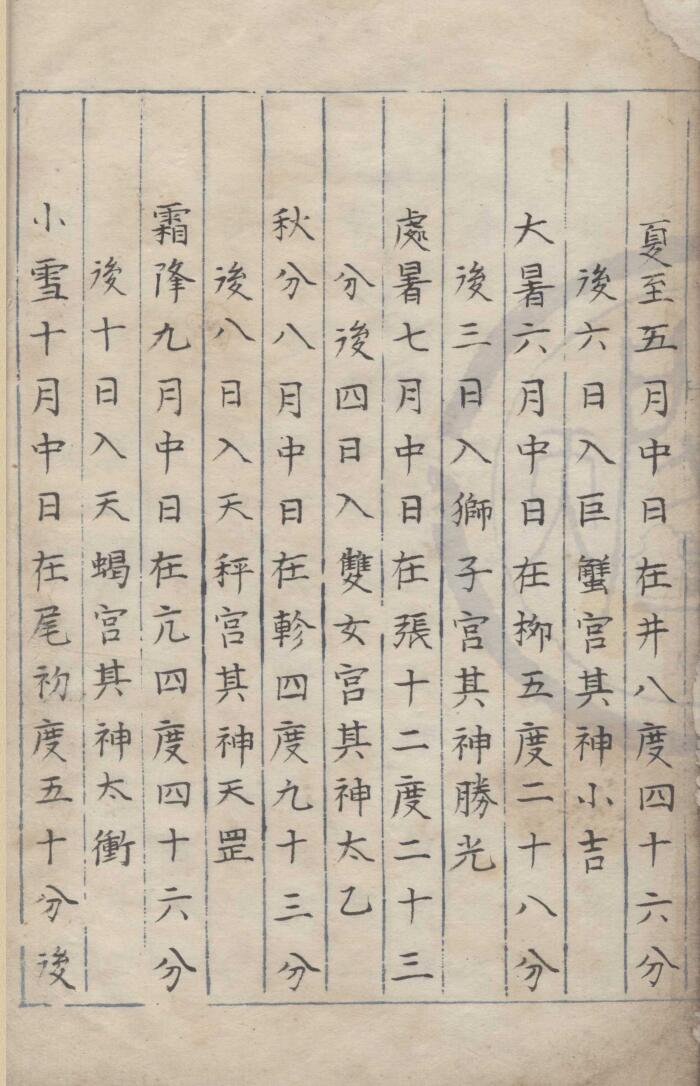 夏至五月中日在井八度四十六分
後六日入巨蟹宫其神小吉
大暑六月中日在栁五度二十八分
後三日入獅子宫其神勝光
處暑七月中日在張十二度二十三
分後四日入雙女宫其神太乙
秋分八月中日在軫四度九十三分
後八日入天秤宫其神天罡
霜降九月中日在亢四度四十六分
後十日入天蝎宫其神太衝
小雪十月中日在尾初度五十分後